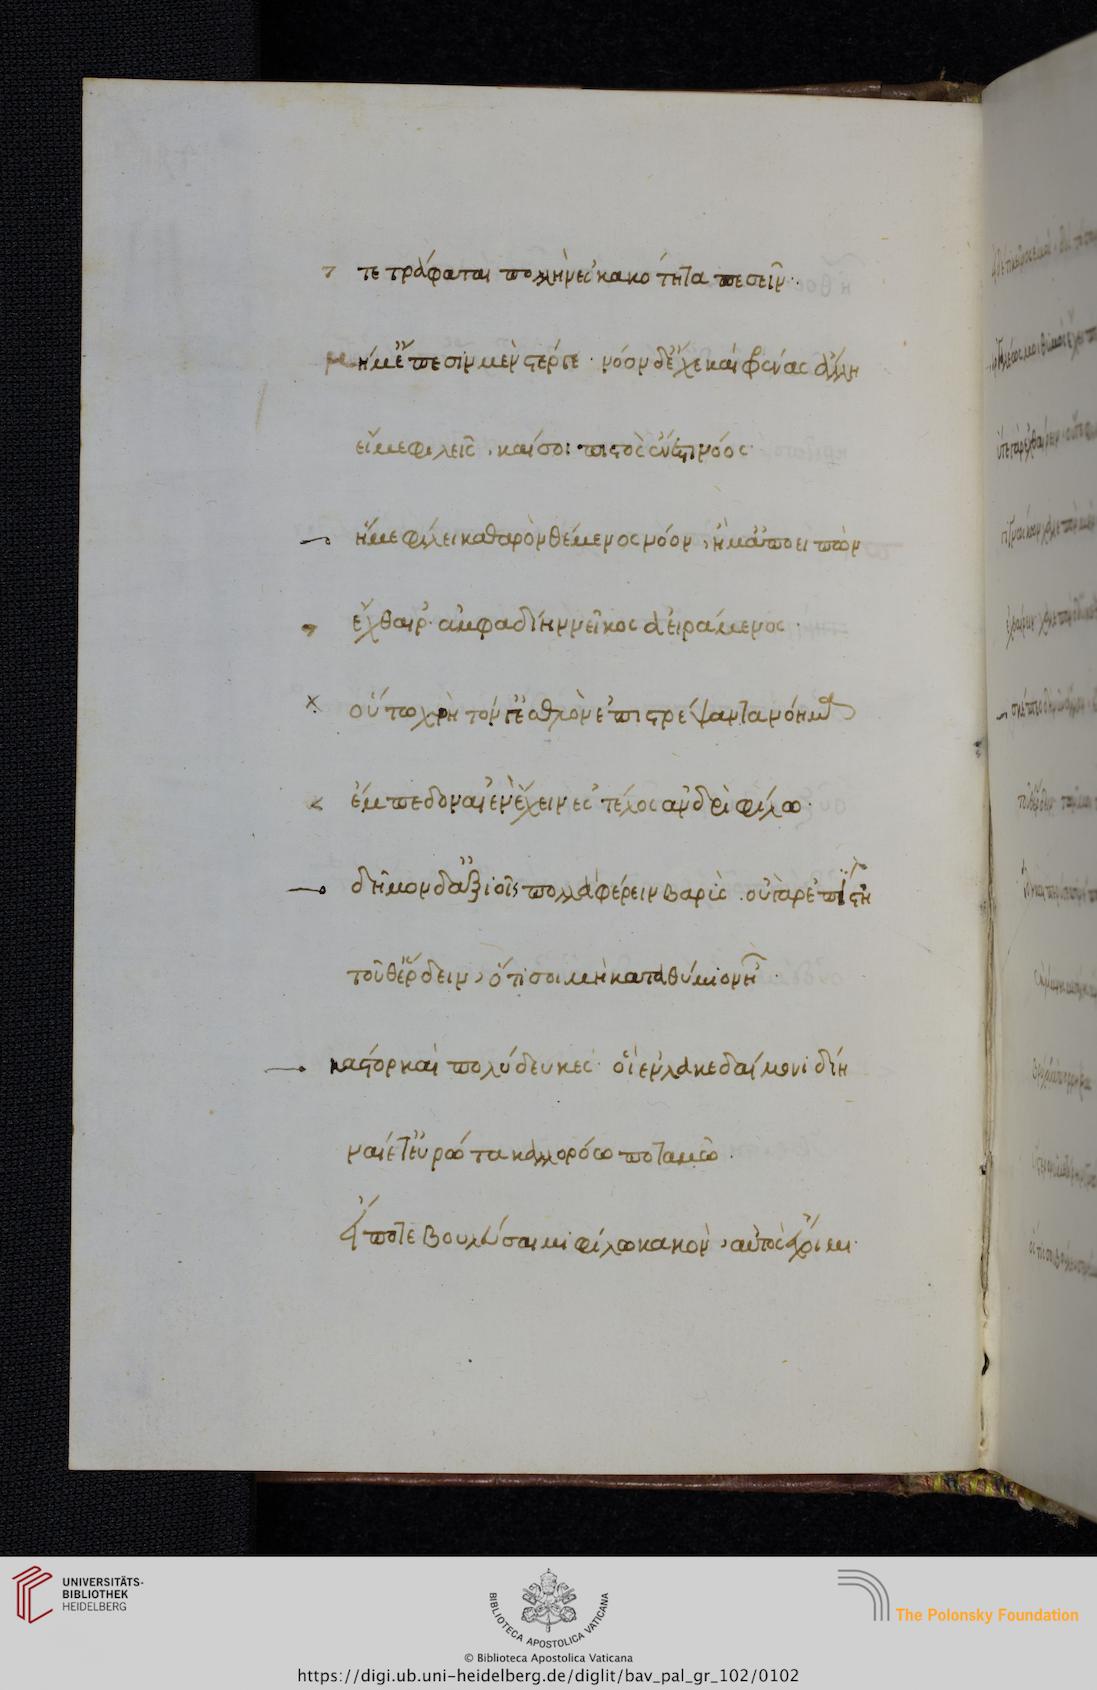 τετράφαται πολλὴν εἰς κακότητα πεσεῖν.
μή μ' ἔπεσιν μὲν στέργε. νόον δ' ἔχε καὶ φρένας ἄλλῃ
εἴ με φιλεῖς, καί σοι πιστὸς ἔνεστι νόος.
ἤ με φίλει καθαρὸν θέμενος νόον, ἤ μ' ἀποειπὼν
ἔχθαιρ' ἀμφαδίην νεῖκος ἀειράμενος.
οὕτω χρὴ τόν γ' ἐσθλὸν ἐπιστρέψαντα νόημα
ἔμπεδον αἰὲν ἔχειν ἐς τέλος ἀνδρὶ φίλω.
δῆμον δ' ἀξιοῖς πολλὰ φέρειν βαρύς. οὔταρ ἐπίστη
τοῦθ' ἔρδειν, ὅτι σοι μὴ καταθύμιον ῇ.
κάστορ καὶ πολύδευκες. οἳ ἐν λακεδαίμονι δίη
ναίετ' ἐπ' εὐρώτα καλλορόω ποταμῶ.
εἴ ποτε βουλεύσαιμι φίλω κακὸν, αὐτὸς ἔχοιμι.
UNIVERSITÄTS-
BIBLIOTHEK
HEIDELBERG
BIBLIOTECA APOSTOLICA VATICANA
The Polonsky Foundation
© Biblioteca Apostolica Vaticana
https://digi.ub.uni-heidelberg.de/diglit/bav_pal_gr_102/0102